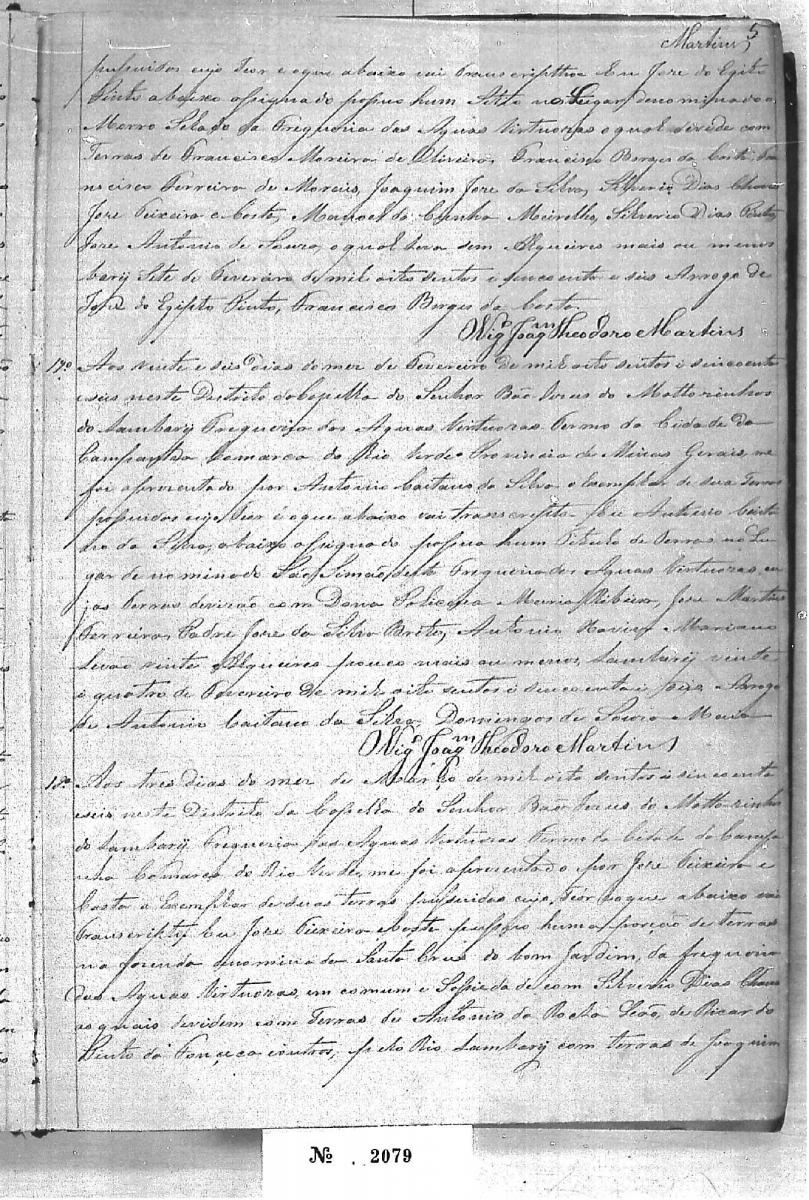 5
Martins
pussuidos cujo Teor e oque abaixo vai Transcripttho Eu Jose do Egito
Pinto abaixo asignado posuo hum Sitio no Lugar denominado o
Morro Selado da Fregueria das Aguas Virtuozas o qual devide com
Terras de Francisco Moreira de Oliveira, Francisco Borges da Costa, Fra
nscisco Ferreira de Morais, Joaquim Jose da Silva, Silverio Dias Chaves
Jose Teixeira e Costa, Manoel da Cunha Meirelles, Silverio Dias Pinto,
Jose Antonio de Souza, o qual leva sem Alqueires mais ou menos
bary Sete de Fevereiro de mil oito sentos e sincoenta e seis Arrogo de
Jose do Egipto Pinto, Francisco Borges da Costa
Vigº Joaqm Theodoro Martins
17º Aos vinte e seis dias do mez de Fevereiro de mil oito sentos i sincoenta
e seis neste Districto da Capella do Senhor Bão Jesus do Mattozinhos
do Lambary Fregueria das Aguas Virtuozas Termo da Cidade da
Campanha Comarca do Rio Verde Provincia de Minas Gerais, me
foi aprezentado por Antonio Caetano da Silva o Exemplar de sua Terras
posuidas cujo Teor é oque abaixo vai transcripto Eu Antonio Caeta
no da Silva, abaixo asignado possuo hum Titulo de Terras no Lu
gar denominado São Simão, desta Fregueria das Aguas Virtuozas, cu
jas Terras devizão com Dona Policena Maria Ribeira, Jose Martins
Ferreira, Padre Jose da Silva Brito, Antonio Xavier Mariano
Levão vinte Alqueires pouco mais ou menos, Lambary vinte
i quatro de Fevereiro de mil oito sentos i sincoenta i seis Arrogo
de Antonio Caetano da Silva, Domingos de Souza Maia
Vigº Joaqm Theodoro Martins
18º Aos tres dias do mez de Março de mil oito sentos i sincoenta
e seis neste Districto da Capella do Senhor Bão Jesus do Mattozinhos
do Lambary Fregueria das Aguas Virtuozas Termo da Cidade da Campa
nha Comarca do Rio Verde, me foi aprezentado por Jose Teixeira e
Costa o Exemplar de suas terras pussuidas cujo Teor oque abaixo vai
Transcripto Eu Jose Teixeira e Costa pussuo huma porção de terras
na fazenda denominada Santa Crus do bom Jardim, da freguezia
das Aguas Virtuozas, em comum e Sosiedade com Silverio Dias Chaves
as quais devidem com Terras de Antonio da Rocha Leão, de Ricardo
Pinto da Fonceca ioutros, pelo Rio Lambary com terras de Joaquim
Nº 2079